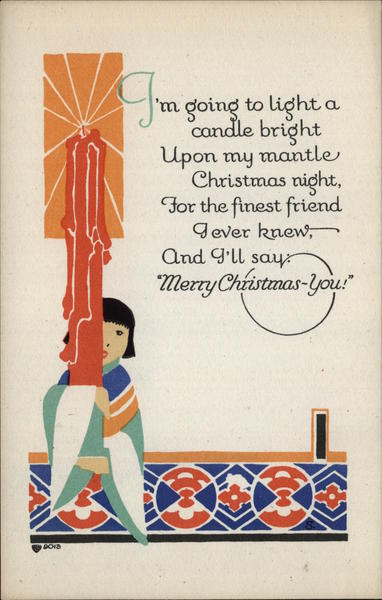 I'm going to light a
candle bright
Upon my mantle
Christmas night,
For the finest friend
I ever knew,—
And I'll say:
"Merry Christmas~You!"
S.
2013